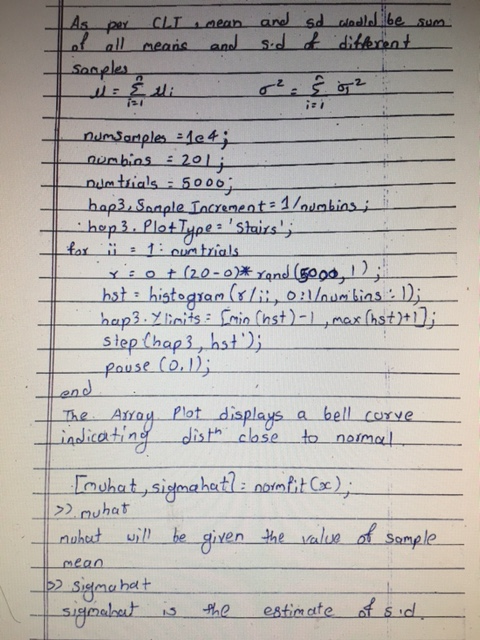 As per CLT, mean and sd would be sum
of all means and s.d of different
samples
μ = Σ_{i=1}^{n} μi        σ² = Σ_{i=1}^{n} σi²
numsamples = 1e4;
numbins = 201;
numtrials = 5000;
hap3.Sample Increment = 1/numbins;
hap3.PlotType = 'Stairs';
for ii = 1: numtrials
r = 0 + (20-0)* rand(5000, 1);
hst = histogram(r/ii, 0:1/numbins:1);
hap3.Ylimits = [min(hst)-1, max(hst)+1];
step(hap3, hst');
pause (0.1);
end
The Array Plot displays a bell curve
indicating distⁿ close to normal
[muhat, sigmahat] = normfit(x);
>> muhat
muhat will be given the value of sample
mean
>> sigmahat
sigmahat is the estimate of s.d.